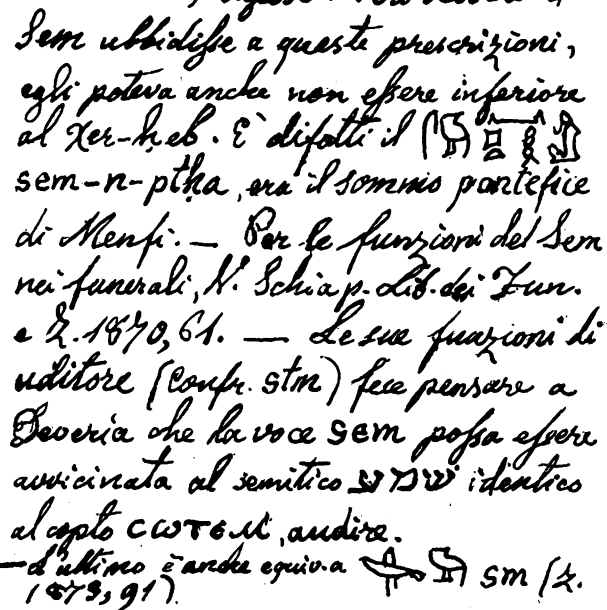 Sem ubbidisse a queste prescrizioni,
egli poteva anche non essere inferiore
al χer-ḥeb. E' difatti il
sem-n-ptḥa, era il sommo pontefice
di Menfi. — Per le funzioni del Sem
nei funerali, V. Schiap. Lib. dei Fun.
e Z. 1870, 61. — Le sue funzioni di
uditore (confr. stm) fece pensare a
Deveria che la voce sem possa essere
avvicinata al semitico שמע identico
al copto ⲥⲱⲧⲉⲙ, audire.
— L'ultimo è anche equiv. a sm (Z.
1873, 91).